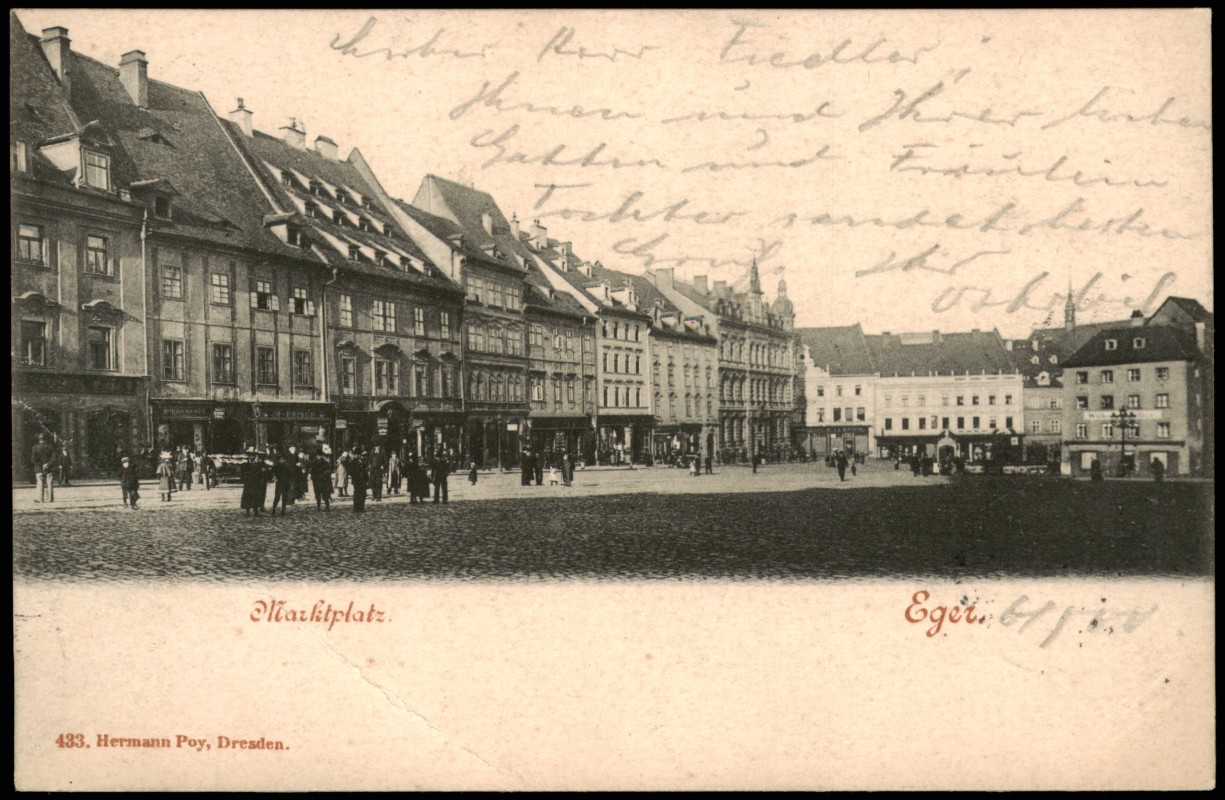 Lieber Herr Fiedler,
Ihnen und Ihrer lieben
Gattin und Fräulein
Tochter sendet besten
Gruß Ihr
Marktplatz.
Eger.
433. Hermann Poy, Dresden.